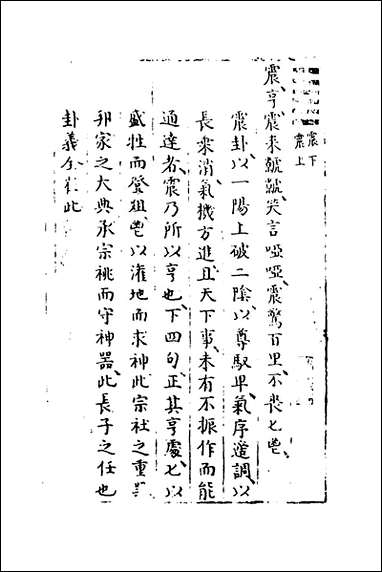 震下
震上
震、亨、震来虩虩、笑言啞啞、震驚百里、不喪匕鬯、
震卦、以一陽上破二陰、以尊馭卑、氣序遷調、以
長来消、氣機方進、且天下事、未有不振作而能
通達者、震乃所以亨也、下四句、正其亨處、匕、以
盛牲而登俎、鬯、以灌地而求神、此宗社之重
邦家之大典、承宗祧而守神器、此長子之任也
卦義全在此